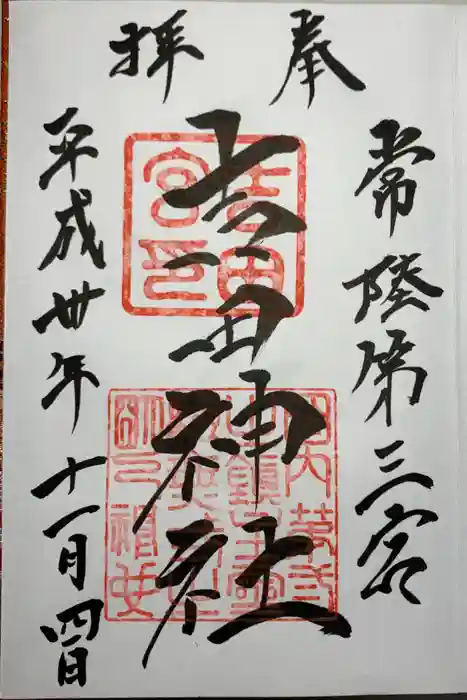 奉拝
常陸第三宮
吉田神社
平成卅年十一月四日
吉田宮印